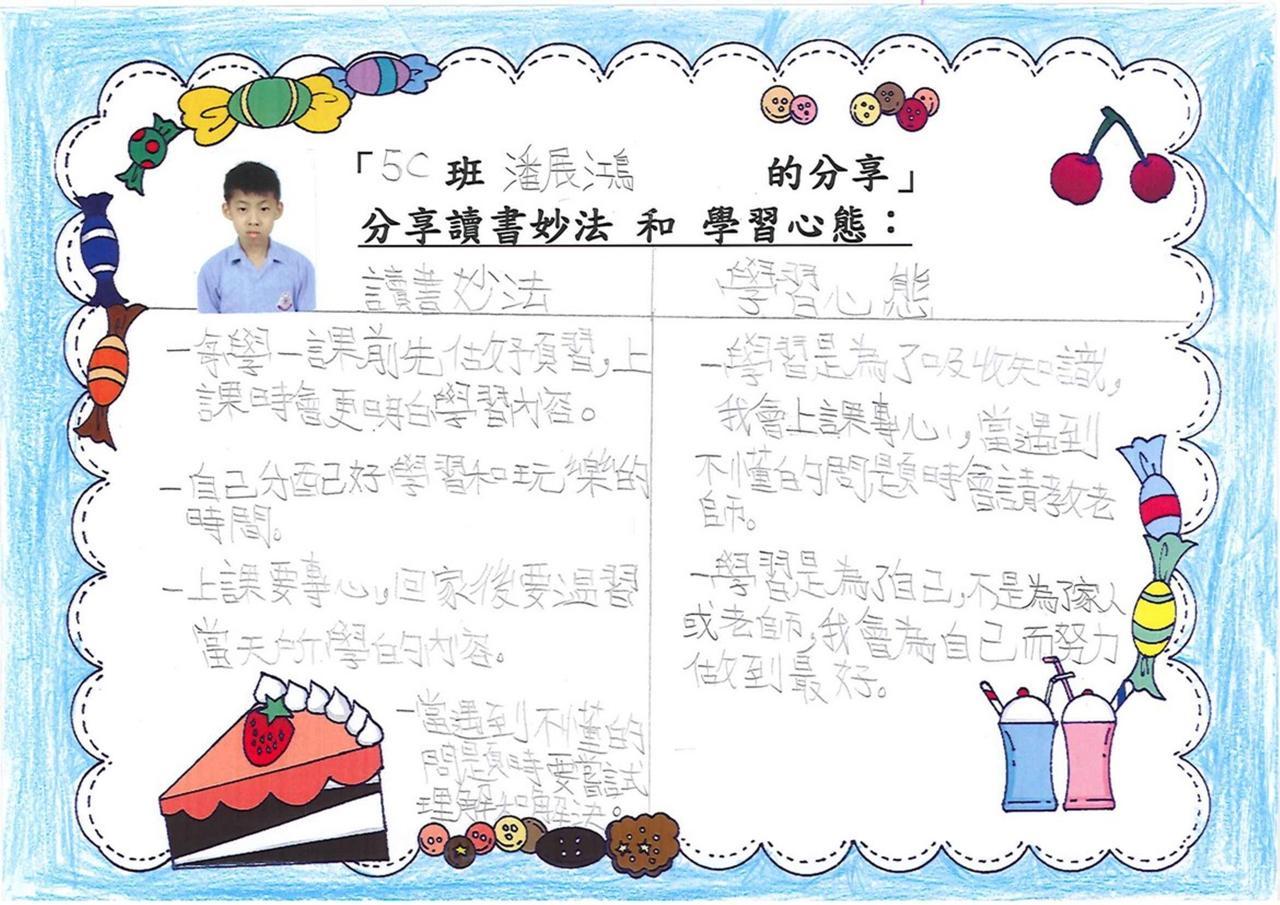 「5C 班 潘展鴻 的分享」
分享讀書妙法 和 學習心態：
讀書妙法
－每學一課前先做好預習，上
課時會更明白學習內容。
－自己分配好學習和玩樂的
時間。
－上課要專心，回家後要温習
當天所學的內容。
－當遇到不懂的
問題時要嘗試
理解和解決。
學習心態
－學習是為了吸收知識，
我會上課專心，當遇到
不懂的問題時會請教老
師。
－學習是為了自己，不是為了家人
或老師，我會為自己而努力
做到最好。